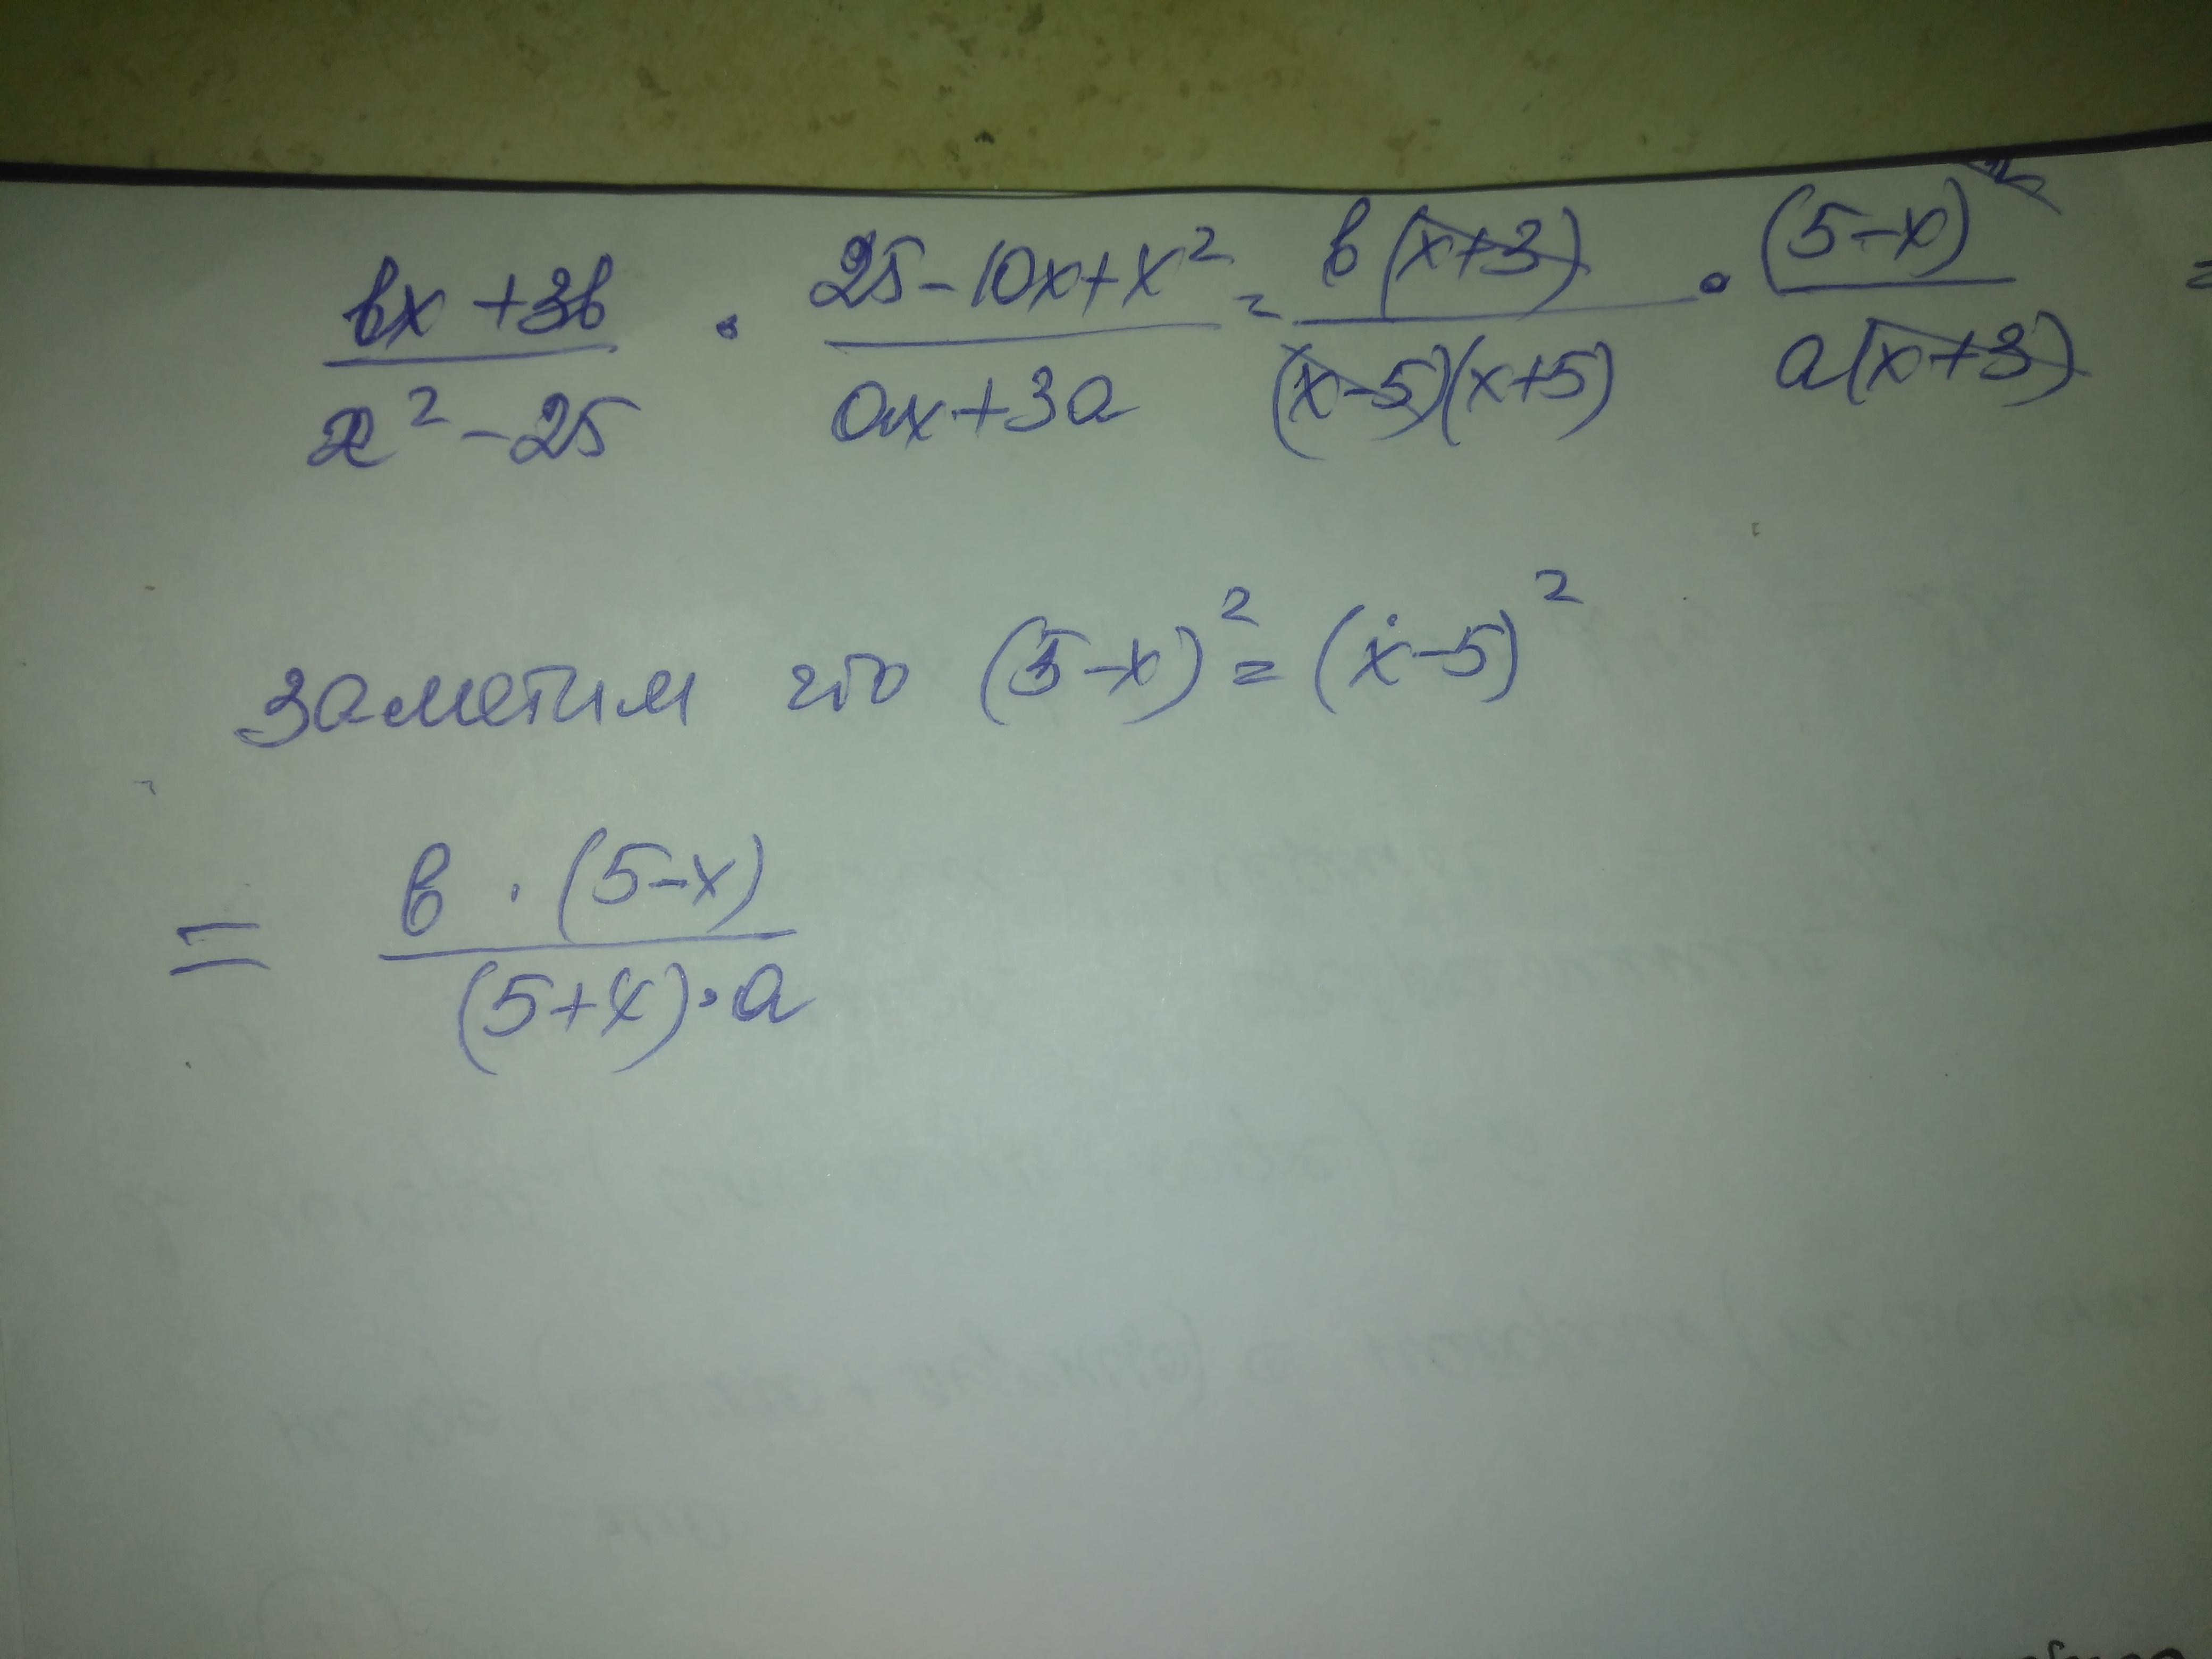 вx + 3в / x² - 25 · 25 - 10x + x² / ax + 3a = в(x+3) / (x-5)(x+5) · (5-x)² / a(x+3) =
заметим что (5-x)² = (x-5)²
= в · (5-x) / (5+x) · a